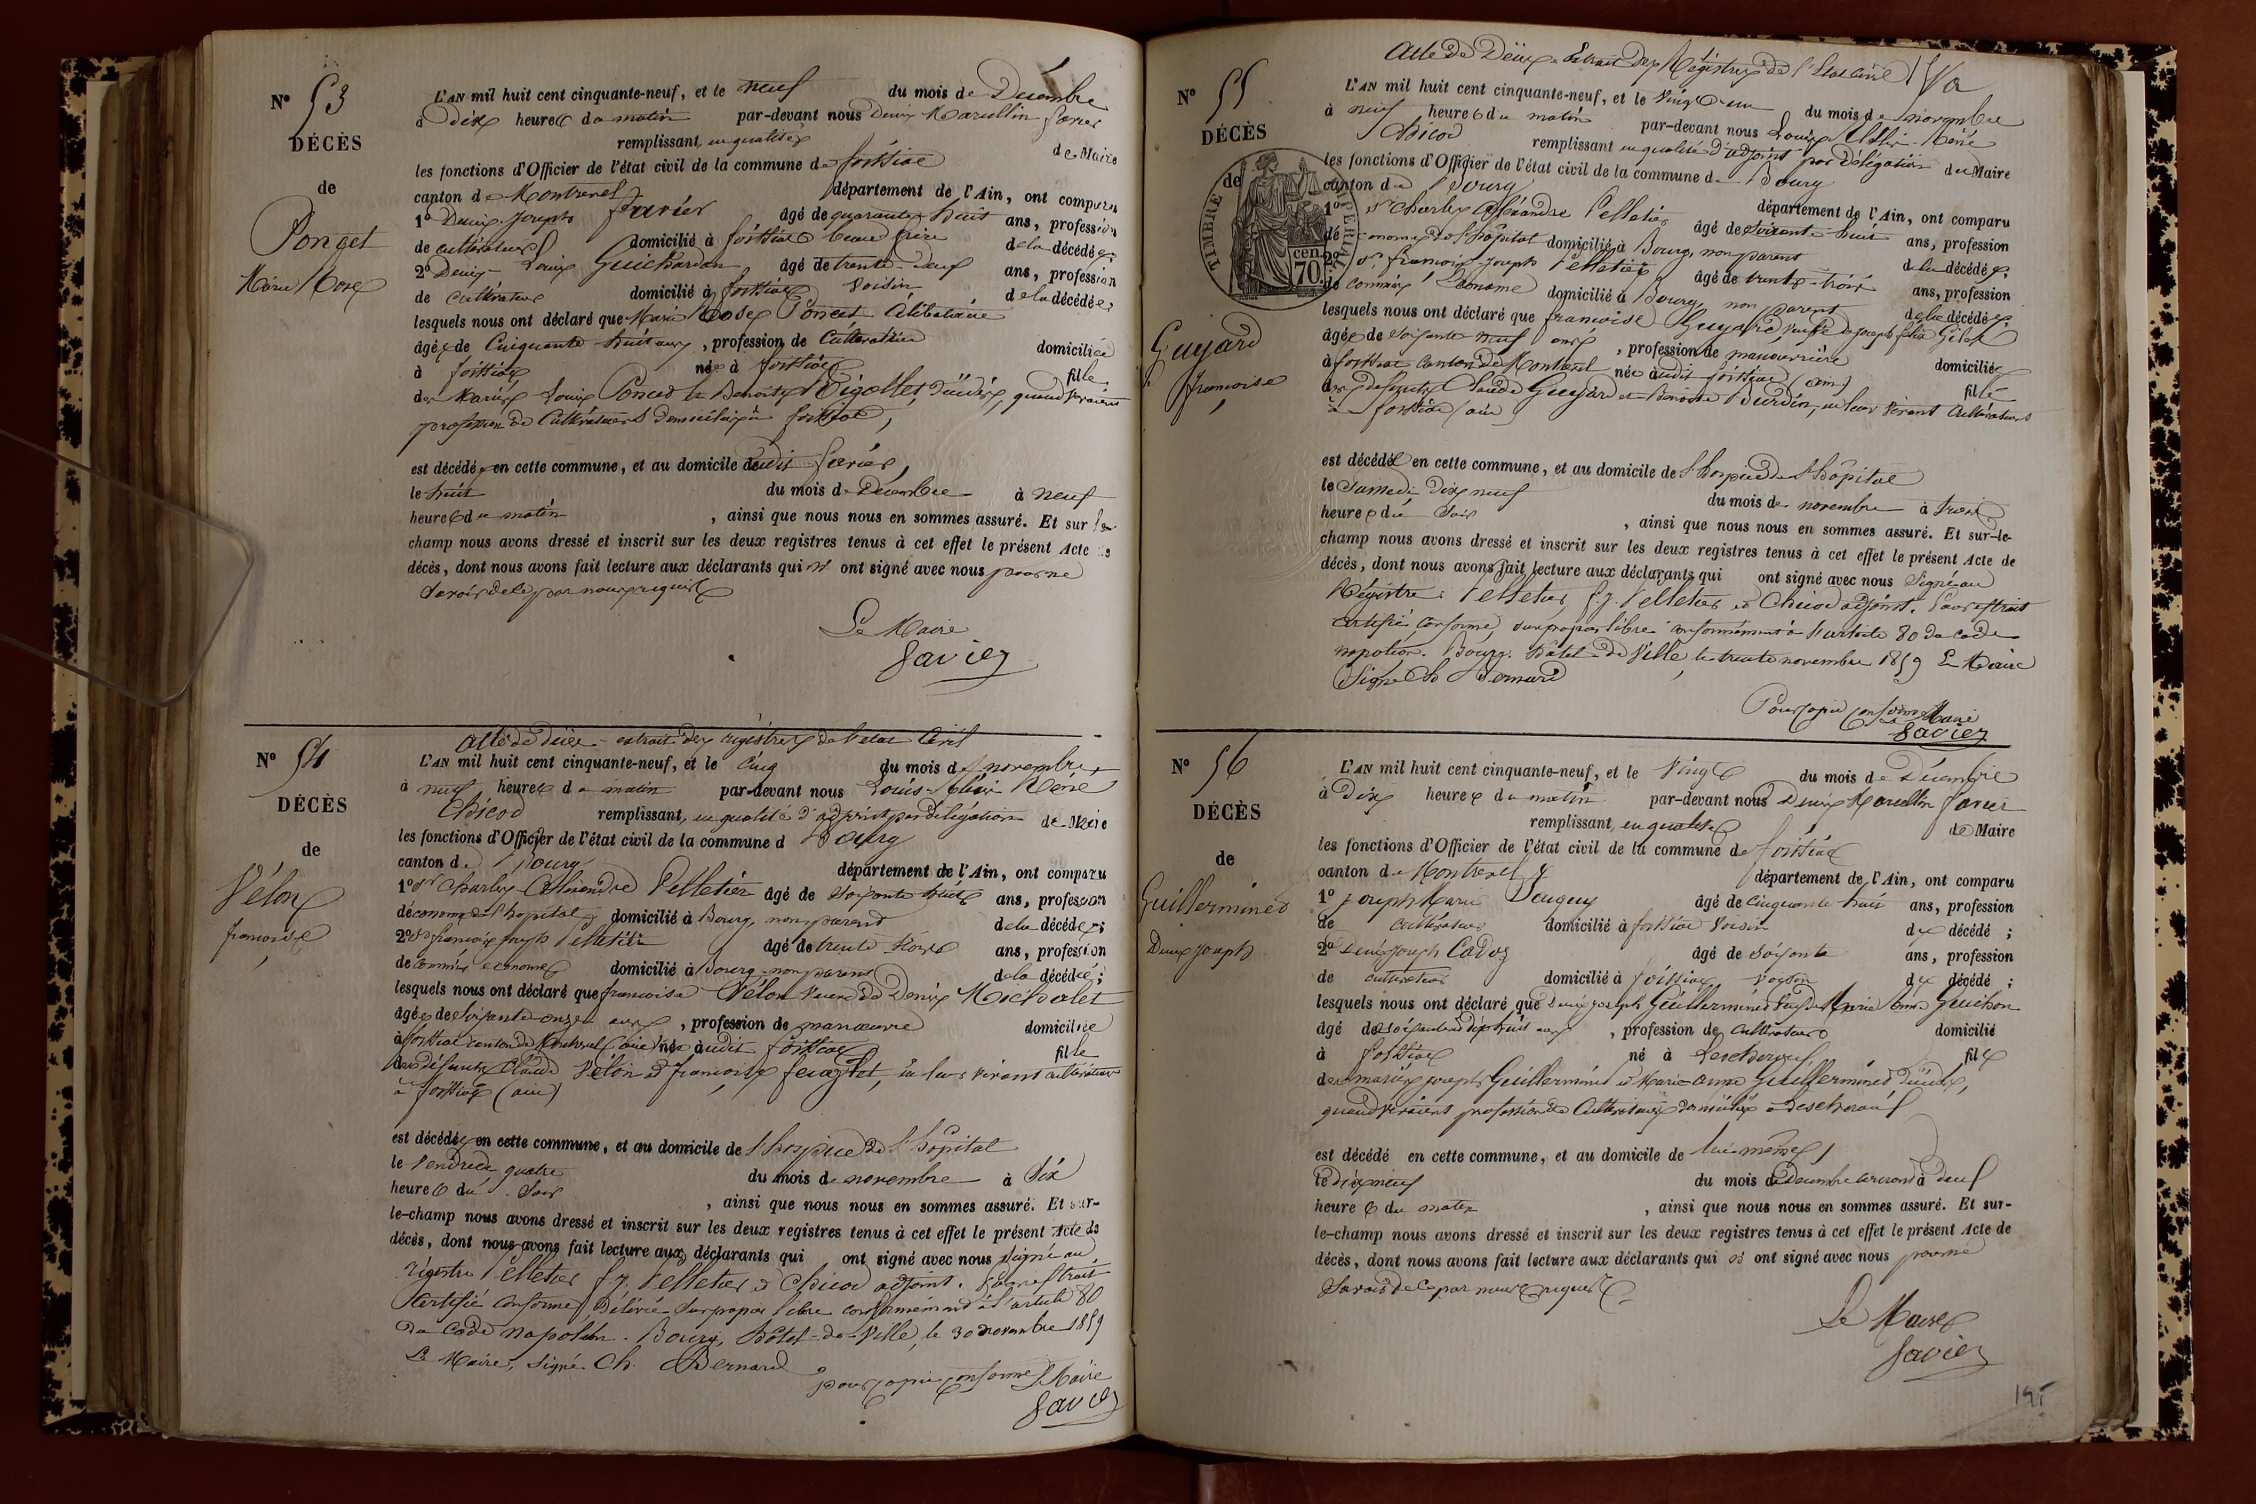 N° 53
DÉCÈS
de
Ponget
Marie Rose
L'AN mil huit cent cinquante-neuf, et le neuf du mois de Décembre
à Dix heures du matin par-devant nous Denis Marcellin favier
remplissant en qualité de Maire
les fonctions d'Officier de l'état civil de la commune de foissiat
canton de Montrevel département de l'Ain, ont comparu
1° Denis Joseph favier âgé de quarante huit ans, profession
de cultivateur domicilié à foissiat beau frère de la décédée;
2° Denis Louis Guichardan âgé de trente-neuf ans, profession
de cultivateur domicilié à foissiat voisin de la décédée;
lesquels nous ont déclaré que Marie Rose Poncet Célibataire
âgée de Cinquante huit ans, profession de Cultivatrice domiciliée
à foissiat née à foissiat fille
des Mariés Louis Poncet et Benoite Rigollet, Décédés, quand vivaient
profession de Cultivateurs domiciliés à foissiat,
est décédée en cette commune, et au domicile dudit favier,
le huit du mois de Décembre à neuf
heures du matin, ainsi que nous nous en sommes assuré. Et sur le
champ nous avons dressé et inscrit sur les deux registres tenus à cet effet le présent Acte de
décès, dont nous avons fait lecture aux déclarants qui n' ont signé avec nous pour ne
savoir de ce par nous requis
Le Maire
favier
N° 54
DÉCÈS
de
Vélon
françoise
acte de décès extrait des registres de l'état Civil
L'AN mil huit cent cinquante-neuf, et le cinq du mois de novembre
à neuf heures du matin par-devant nous Louis René
Chicod remplissant en qualité d'adjoint par délégation de Maire
les fonctions d'Officier de l'état civil de la commune d Bourg
canton de Bourg département de l'Ain, ont comparu
1° Sr Charles Alexandre Pelletier âgé de soixante huit ans, profession
d'économe de l'hopital domicilié à Bourg, non parent de la décédée;
2° Sr françois Joseph Pelletier âgé de trente trois ans, profession
de commis économe domicilié à Bourg non parent de la décédée;
lesquels nous ont déclaré que françoise Vélon veuve de Denis Michalet
âgée de soixante onze ans, profession de manœuvre domiciliée
à foissiat canton de Montrevel (ain) née audit foissiat fille
des défunts Claude Vélon et françoise, en leur vivant cultivateurs
à foissiat (ain)
est décédée en cette commune, et au domicile de l'hospice de l'hôpital
le vendredi quatre du mois de novembre à Six
heures du soir, ainsi que nous nous en sommes assuré. Et sur-
le-champ nous avons dressé et inscrit sur les deux registres tenus à cet effet le présent Acte de
décès, dont nous avons fait lecture aux déclarants qui ont signé avec nous signé au
régistre Pelletier, f. J. Pelletier et Chicod adjoint. Pour extrait
certifié conforme, Délivré sur papier libre conformément à l'article 80
du Code napoléon. Bourg, Hôtel-de-Ville, le 30 novembre 1859
Le Maire, signé Ch. Bernard
pour copie conforme Le Maire
favier
N° 55
DÉCÈS
de
TIMBRE IMPÉRIAL
70 cen.
Guyard
françoise
Acte de Décès Extrait des Régistres de l'Etat Civil
L'AN mil huit cent cinquante-neuf, et le vingt-un du mois de novembre
à neuf heures du matin par-devant nous Louis René
Chicod remplissant en qualité d'adjoint par Délégation de Maire
les fonctions d'Officier de l'état civil de la commune de Bourg
canton de Bourg département de l'Ain, ont comparu
1° Sr Charles Alexandre Pelletier âgé de soixante-huit ans, profession
d'économe de l'hôpital domicilié à Bourg, non parent de la décédée;
2° Sr françois-Joseph Pelletier âgé de trente-trois ans, profession
de commis économe domicilié à Bourg, non parent de la décédée;
lesquels nous ont déclaré que françoise Guyard, veuve de Joseph félix
âgée de soixante neuf ans, profession de manouvrière domiciliée
à foissiat canton de Montrevel née audit foissiat (ain) fille
des défunts Claude Guyard et Benoite Burdin, en leur vivant cultivateurs
à foissiat (ain)
est décédée en cette commune, et au domicile de l'hospice de l'hôpital
le Samedi Dix neuf du mois de novembre à trois
heures du soir, ainsi que nous nous en sommes assuré. Et sur-le-
champ nous avons dressé et inscrit sur les deux registres tenus à cet effet le présent Acte de
décès, dont nous avons fait lecture aux déclarants qui ont signé avec nous Signé au
Régistre: Pelletier, f. J. Pelletier et Chicod adjoint. Pour extrait
certifié conforme, sur papier libre conformément à l'article 80 du code
napoléon. Bourg, Hôtel-de-Ville, le trente novembre 1859 Le Maire
Signé Ch Bernard
Pour copie conforme Le Maire
favier
N° 56
DÉCÈS
de
Guillerminet
Denis Joseph
L'AN mil huit cent cinquante-neuf, et le Vingt du mois de Décembre
à Dix heures du matin par-devant nous Denis Marcellin favier
remplissant en qualité de Maire
les fonctions d'Officier de l'état civil de la commune de foissiat
canton de Montrevel département de l'Ain, ont comparu
1° Joseph Marie âgé de Cinquante huit ans, profession
de cultivateur domicilié à foissiat voisin du décédé;
2° Denis Joseph Cadoz âgé de soixante ans, profession
de cultivateur domicilié à foissiat voisin du décédé;
lesquels nous ont déclaré que Denis Joseph Guillerminet Veuf de Marie Anne Guichon
âgé de soixante dix huit ans, profession de Cultivateur domicilié
à foissiat né à Lescheroux fils
des mariés Joseph Guillerminet et Marie-Anne Guillerminet Décédés,
quand vivaient profession de Cultivateurs domiciliés à Lescheroux
est décédé en cette commune, et au domicile de lui-même,
le dix neuf du mois de Décembre courant à neuf
heures du matin, ainsi que nous nous en sommes assuré. Et sur-
le-champ nous avons dressé et inscrit sur les deux registres tenus à cet effet le présent Acte de
décès, dont nous avons fait lecture aux déclarants qui n' ont signé avec nous pour ne
savoir de ce par nous requis
Le Maire
favier
195